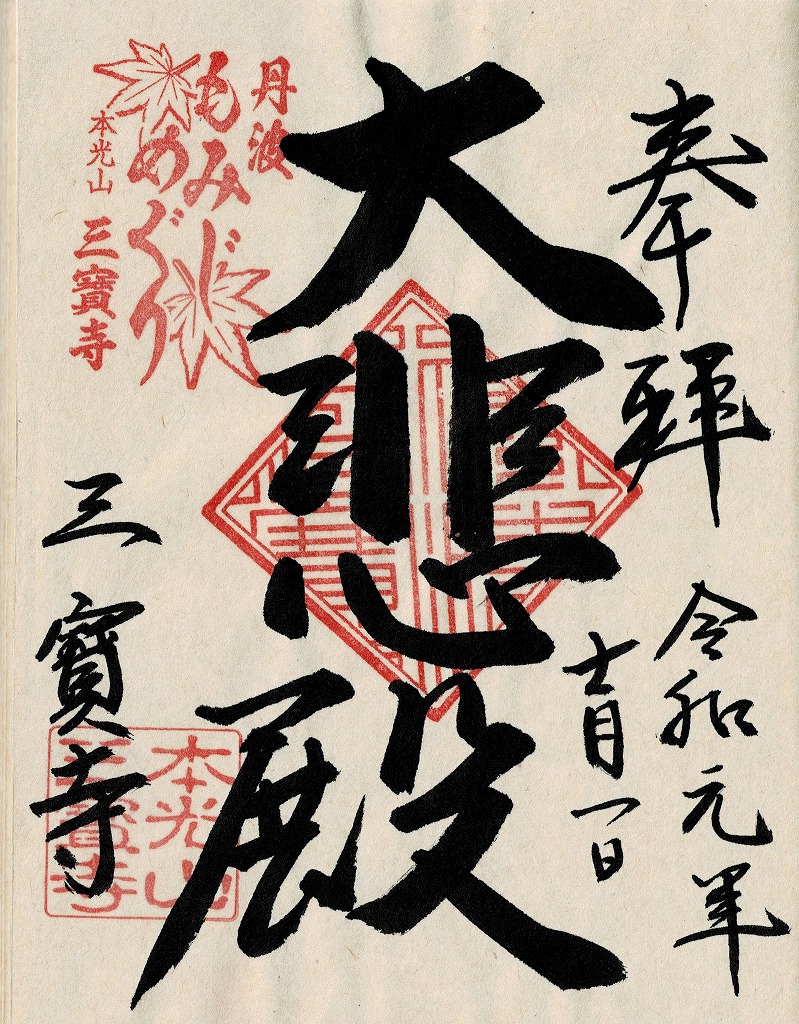 奉拜
令和元年
十一月一日
大悲殿
丹波
もみじ
めぐり
本光山
三寶寺
三寶寺
本光山
三寶寺